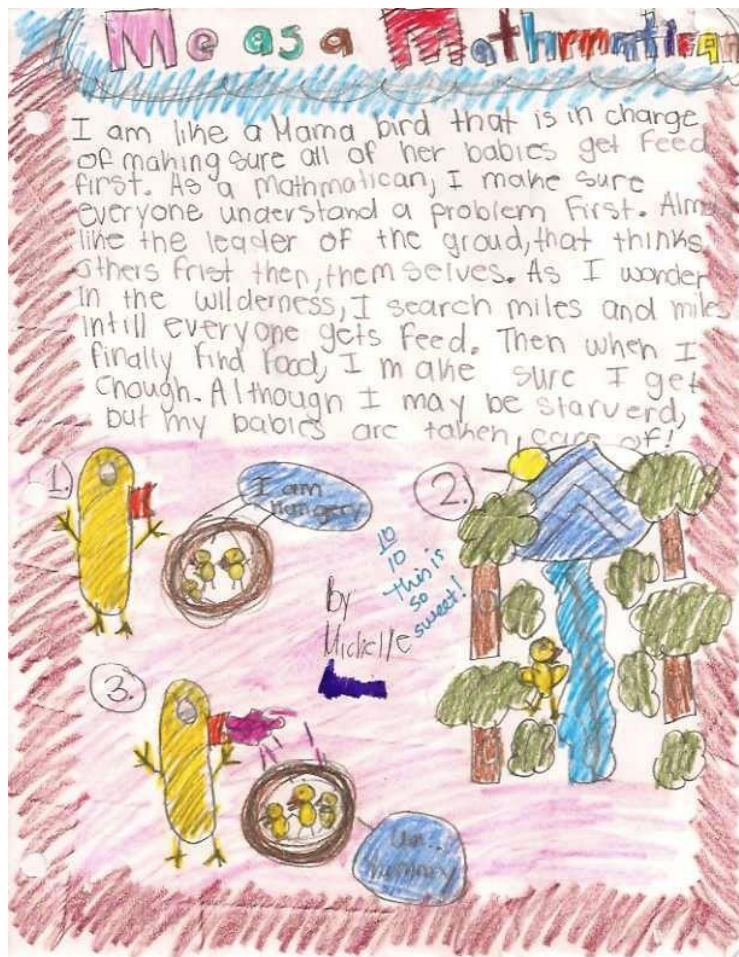 Me as a Mathmatican
I am like a Mama bird that is in charge
of making sure all of her babies get feed
first. As a mathmatican, I make sure
everyone understand a problem first. Alm
like the leader of the groud, that thinks
others frist then, themselves. As I wonder
in the wilderness, I search miles and miles
intill everyone gets feed. Then when I
finally find food, I make sure I get
enough. Although I may be starverd,
but my babies are taken, care of!
1.
I am
hungery
2.
10
10
this is
so
sweet!
by
Michelle
3.